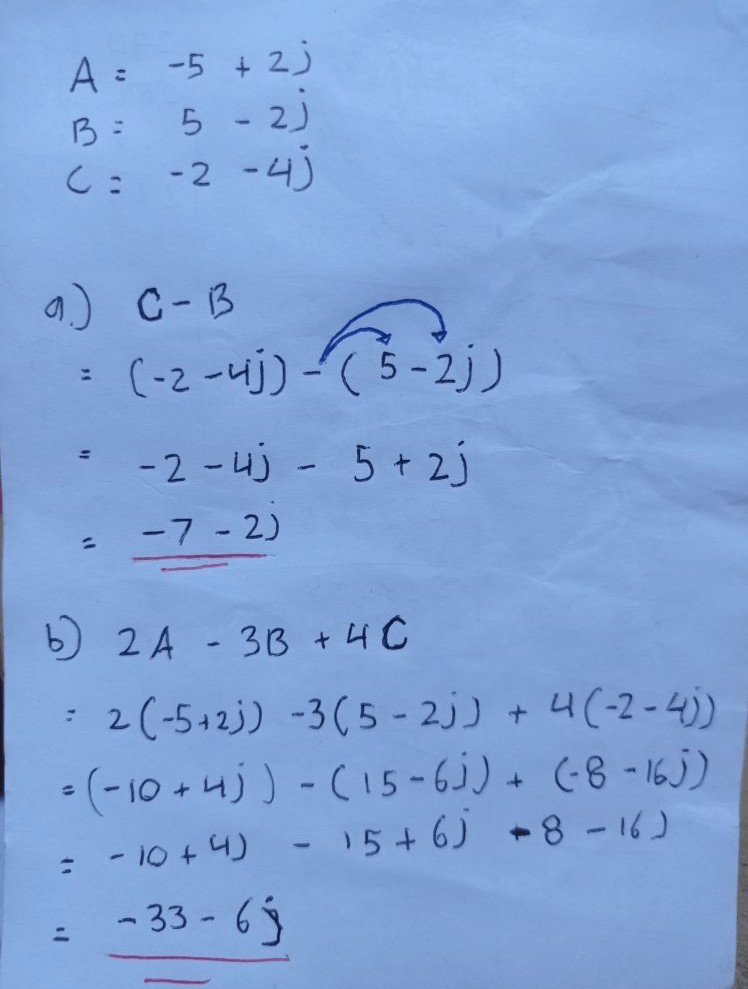 A = -5 + 2j
B = 5 - 2j
C = -2 - 4j
a.) C - B
= (-2 - 4j) - (5 - 2j)
= -2 - 4j - 5 + 2j
= -7 - 2j
b) 2A - 3B + 4C
= 2(-5+2j) -3(5 - 2j) + 4(-2 - 4j)
= (-10 + 4j) - (15 - 6j) + (-8 - 16j)
= -10 + 4j - 15 + 6j - 8 - 16j
= -33 - 6j